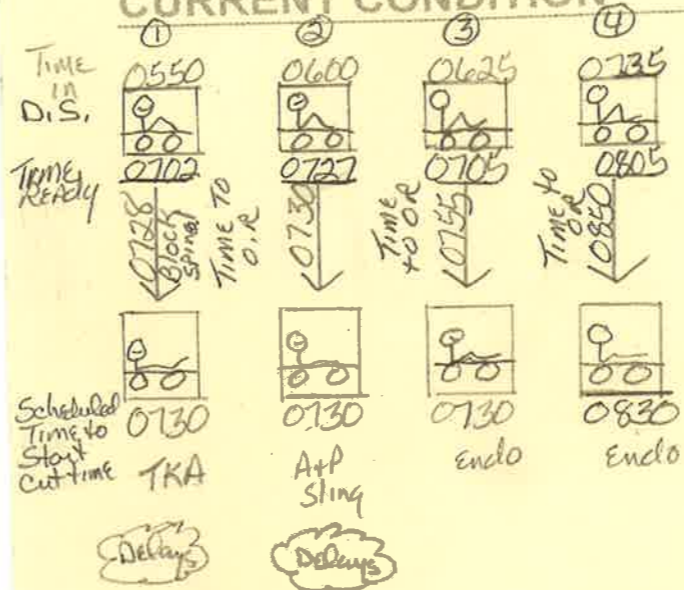 CURRENT CONDITION
① ② ③ ④
Time in D.S. 0550 0600 0625 0735
TIME READY 0702 0727 0705 0805
0728 Block Spinal
TIME TO O.R 0730
TIME TO OR 0755
TIME to OR 0850
Scheduled Time to Start cut time 0730 0730 0730 0830
TKA A+P Sling Endo Endo
Delays Delays